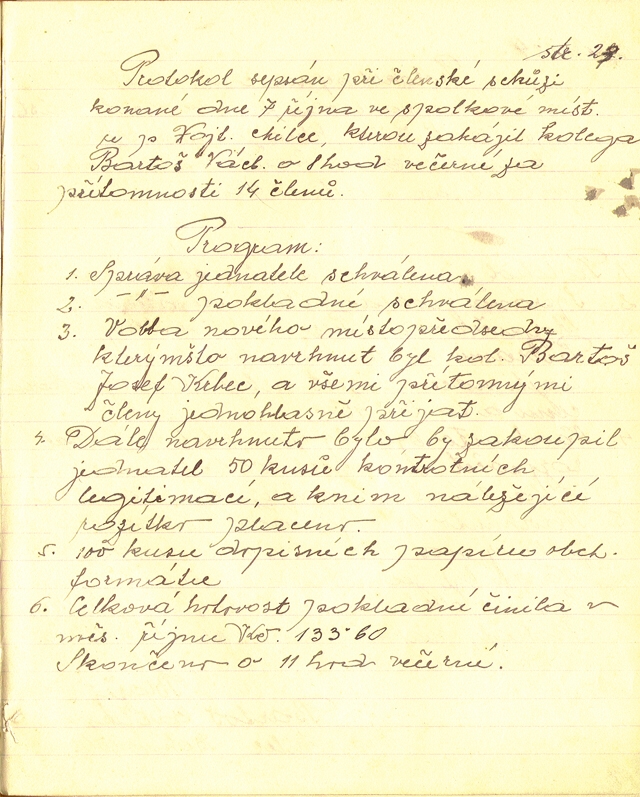 str. 27.
Protokol sepsán při členské schůzi
konané dne 7 října ve spolkové míst.
u p Vojt. chilce, kterou zahájil kolega
Bartoš Václ. o 8 hod večerné za
přítomnosti 14 členů.
Program:
1. Správa jednatele schválena.
2. -"- pokladné schválena
3. Volba nového místopředsedy
kterýmšto navrhnut byl kol. Bartoš
Josef Krbec, a všemi přítomnými
členy jednohlasně přijat.
4. Dále navrhnuto bylo by zakoupil
jednatel 50 kusů kontrolních
legitimací, a knim náležející
razítko placeno.
5. 100 kusu dopisních papíru obch.
formátu
6. Celková hotovost pokladné činila v
měs. říjnu Kč. 133·60
Skončeno o 11 hod večerné.